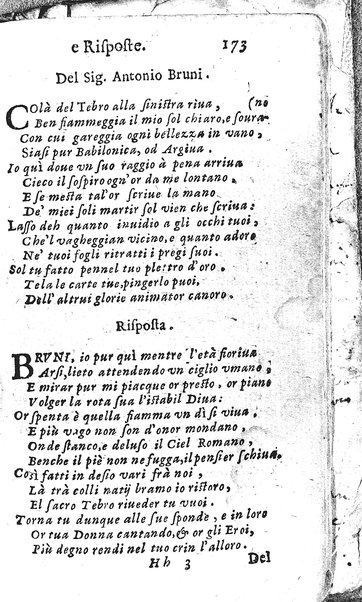 e Risposte. 173
Del Sig. Antonio Bruni.
COlà del Tebro alla sinistra riua, (no
Ben fiammeggia il mio sol chiaro, e soura-
Con cui gareggia ogni bellezza in vano,
Siasi pur Babilonica, od Argiua.
Io quì doue vn suo raggio à pena arriua
Cieco il sospiro ogn'or da me lontano.
E se mesta tal'or scriue la mano
De' miei soli martir sol vien che scriua:
Lasso deh quanto inuidio a gli occhi tuoi,
Che'l vagheggian vicino, e quanto adoro
Ne' tuoi fogli ritratti i pregi suoi.
Sol tu fatto pennel tuo plettro d'oro.
Tela le carte tue, pingerlo puoi,
Dell'altrui glorie animator canoro.
Risposta.
BRVNI, io pur quì mentre l'età fioriua
Arsi, lieto attendendo vn ciglio vmano,
E mirar pur mi piacque or presto, or piano
Volger la rota sua l'istabil Diua:
Or spenta è quella fiamma vn dì sì viua.
E più vago non son d'onor mondano,
Onde stanco, e deluso il Ciel Romano,
Benche il piè non ne fugga, il pensier schiua.
Così fatti in desio vari frà noi,
Là trà colli natij bramo io ristoro,
El sacro Tebro riueder tu vuoi.
Torna tu dunque alle sue sponde, e in loro
Or tua Donna cantando, & or gli Eroi,
Più degno rendi nel tuo crin l'alloro.
Hh 3 Del